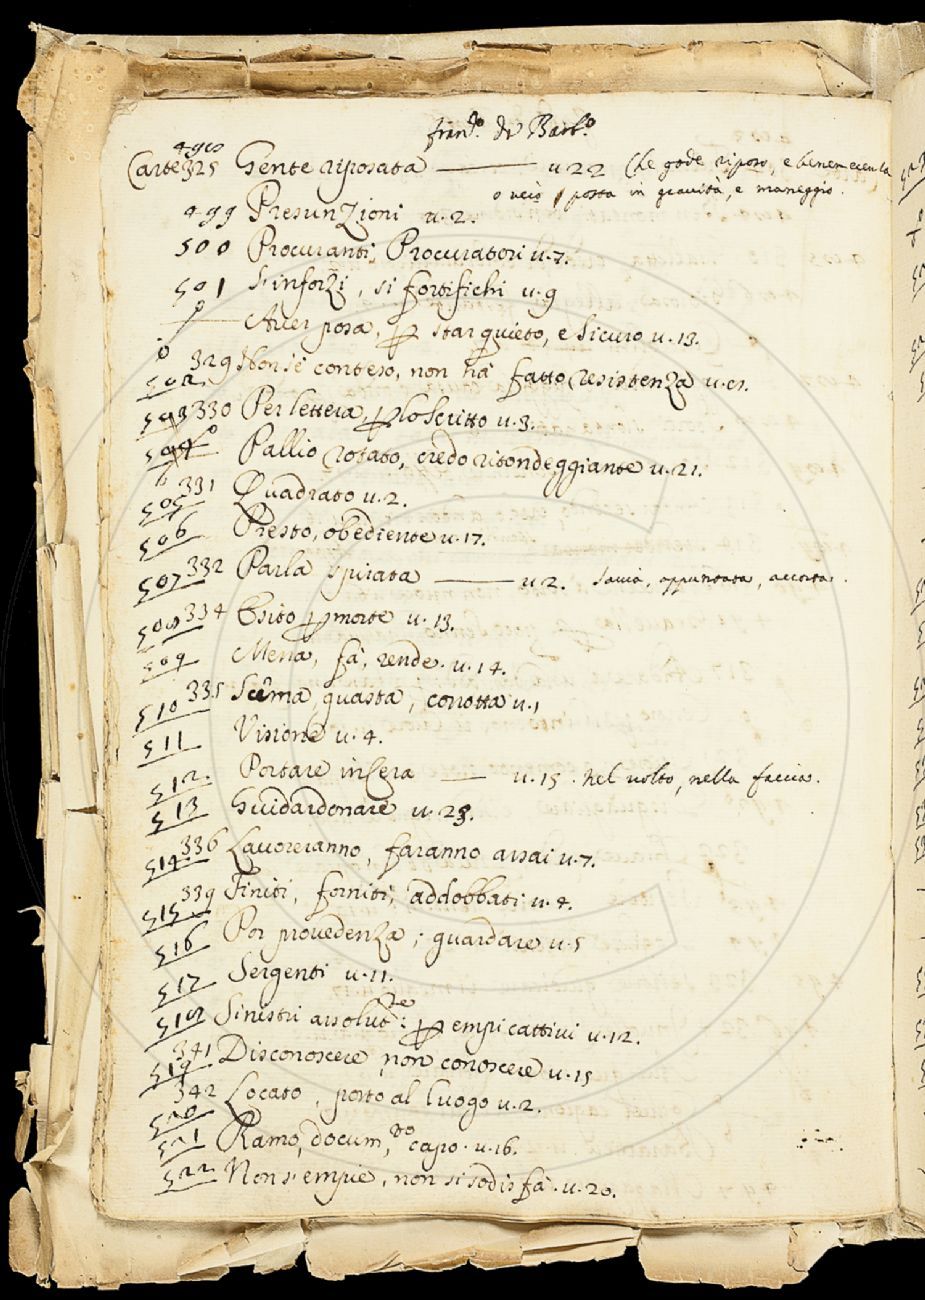 fran.co da Barb.o
Carte 325 Gente riposata —— u 22 Che gode riposo, e benemerenza
o uero posta in grauità, e maneggio.
499 Presunzioni u. 2.
500 Procuranti, Procuratori u. 7.
501 S'inforzi, si fortifichi u. 9
Auer posa, p star quieto, e sicuro u. 13.
502 329 Non s'è conteso, non hà fatto resistenza u.
503 330 Per lettera, p lo scritto u. 3.
504 Pallio rotato, credo ritondeggiante u. 21.
505 331 Quadrato u. 2.
506 Presto, obediente u. 17.
507 332 Parla spirata —— u 2. sauia, appuntata, accorta.
508 334 Esito p morte u. 13.
509 Mena, fà, rende. u. 14.
510 335 Scema, guasta, corrotta u. 1
511 Visione u. 4.
512. Portare in Cera — u. 15. nel uolto, nella faccia.
513 Guidardonare u. 23.
514. 336 Lauoreranno, faranno assai u. 7.
515 339 Finiti, forniti, addobbati u. 4.
516 Por prouedenza; guardare u. 5
517 Sergenti u. 11.
518 Sinistri assolut.te: p empi cattiui u. 12.
519 341 Disconoscere non conoscere u. 15
520 342 Locato, posto al luogo u. 2.
521 Ramo, docum.to, capo. u. 16.
522 Non s'empie, non si sodisfà. u. 20.